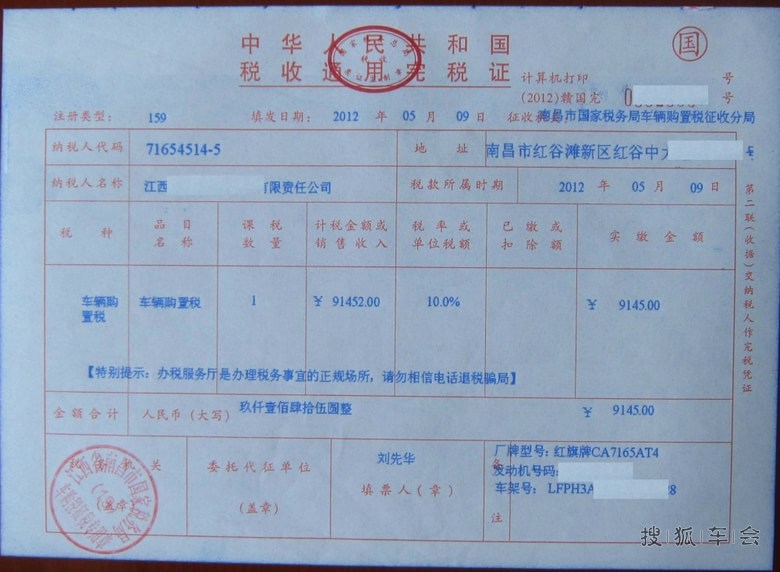 中华人民共和国
国
税收通用完税证
计算机打印 号
(2012)赣国定 0 号
注册类型： 159 填发日期： 2012 年 05 月 09 日 征收机关： 南昌市国家税务局车辆购置税征收分局
纳税人代码 71654514-5 地 址 南昌市红谷滩新区红谷中大
纳税人名称 江西 有限责任公司 税款所属时期 2012 年 05 月 09 日
税 种 品目名称 课税数量 计税金额或销售收入 税率或单位税额 已缴或扣除额 实缴金额
车辆购置税 车辆购置税 1 ￥ 91452.00 10.0% ￥ 9145.00
【特别提示：办税服务厅是办理税务事宜的正规场所，请勿相信电话退税骗局】
金额合计 人民币（大写） 玖仟壹佰肆拾伍圆整 ￥ 9145.00
关
（盖章）
委托代征单位
（盖章）
刘先华
填票人（章）
备
注
厂牌型号：红旗牌CA7165AT4
发动机号码：
车架号： LFPH3A 28
第二联（收据）交纳税人作完税凭证
搜狐车会